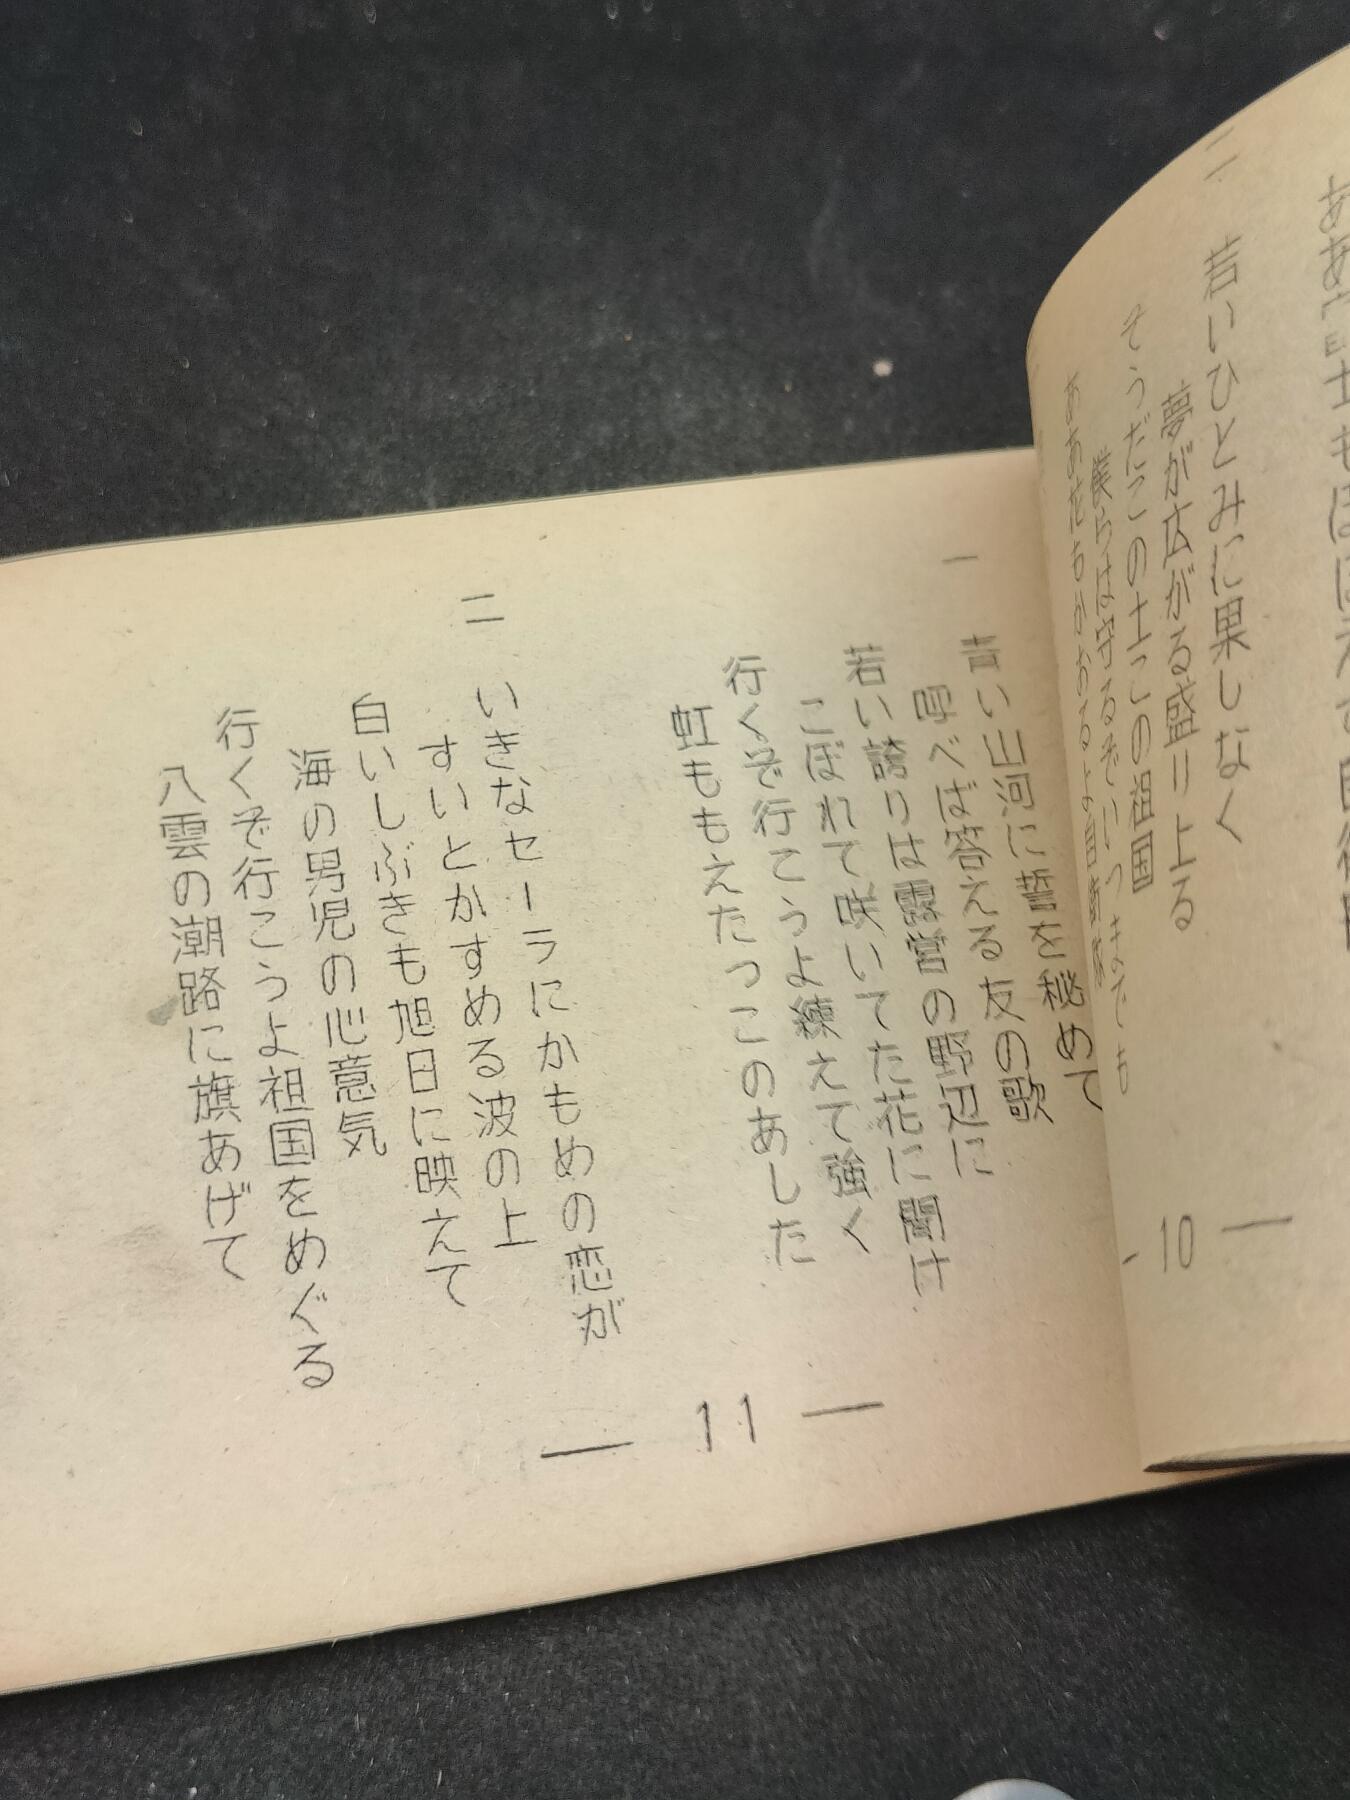 ああ富士もほほえむ自衛隊
二
若いひとみに果しなく
夢が広がる盛り上る
そうだこの土この祖国
僕らは守るぞいつまでも
ああ花もかおるよ自衛隊
— 10 —
一
青い山河に誓を秘めて
呼べば答える友の歌
若い誇りは露営の野辺に
こぼれて咲いてた花に聞け
行くぞ行てうよ練えて強く
虹ももえたつこのあした
二
いきなセーラにかもめの恋が
すいとかすめる波の上
白いしぶきも旭日に映えて
海の男児の心意気
行くぞ行こうよ祖国をめぐる
八雲の潮路に旗あげて
— 11 —